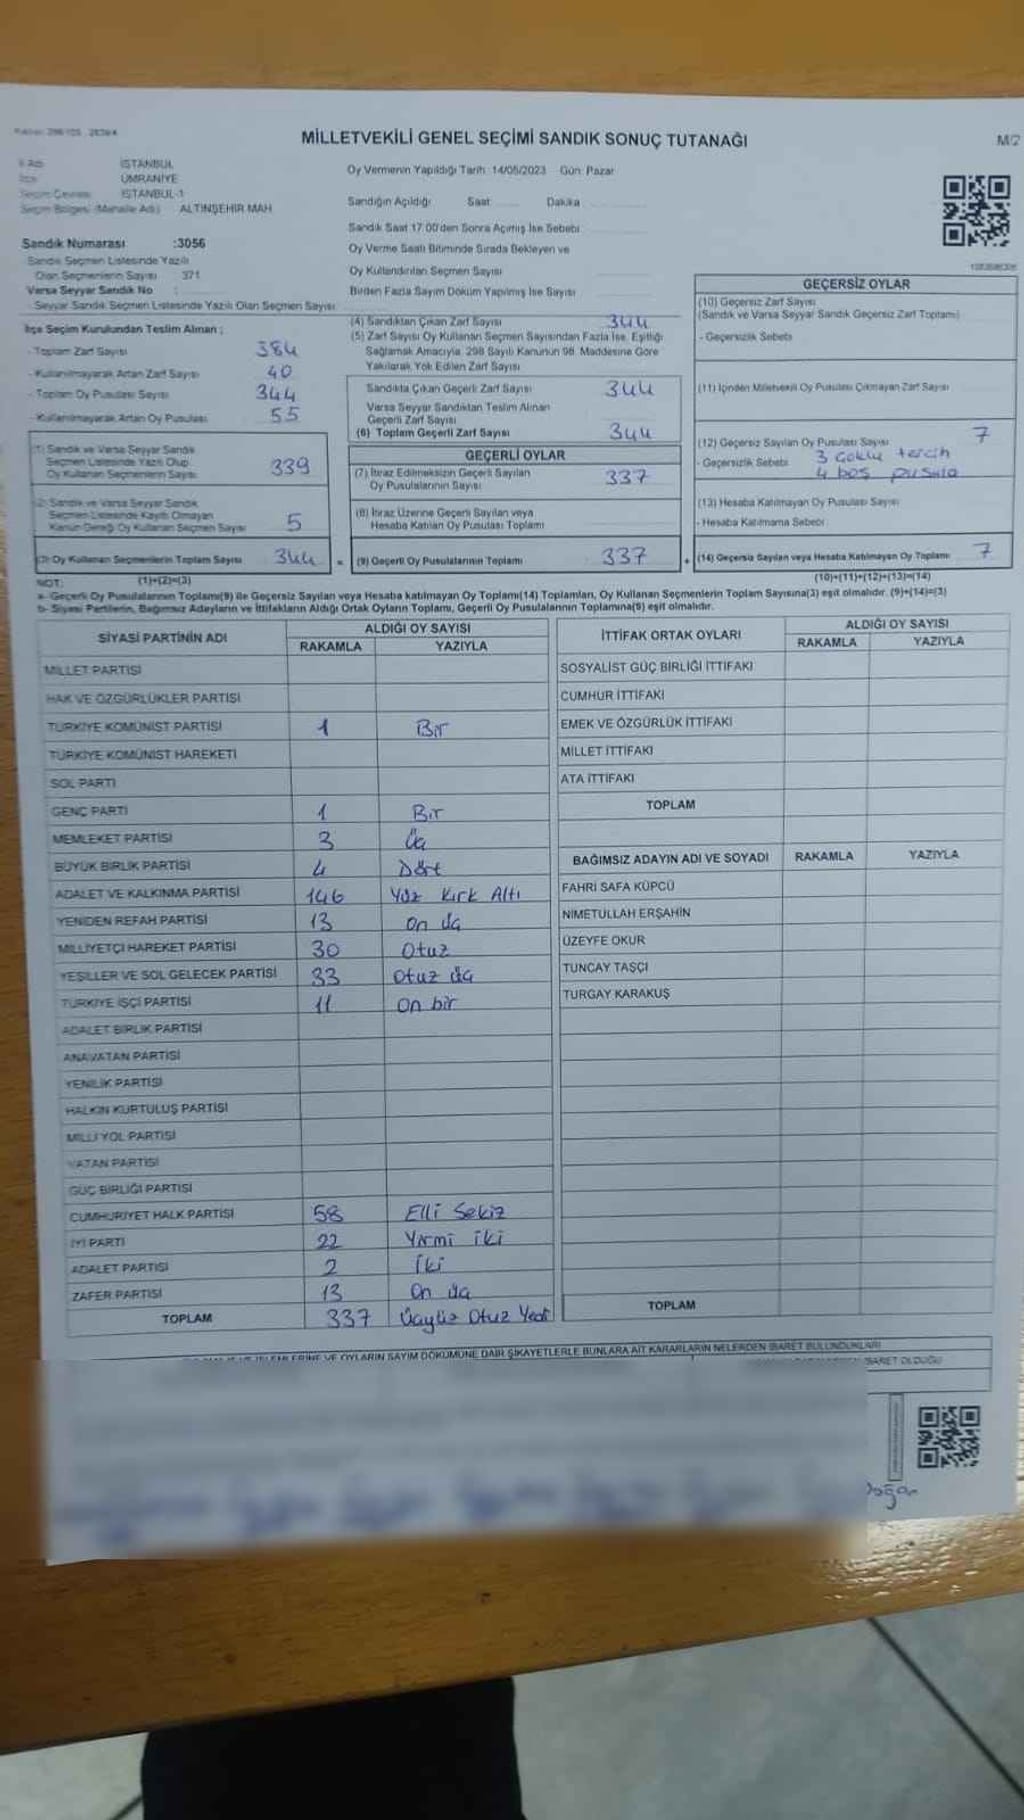 MİLLETVEKİLİ GENEL SEÇİMİ SANDIK SONUÇ TUTANAĞI
M/2
İSTANBUL
ÜMRANİYE
Seçim Çevresi İSTANBUL-1
Seçim Bölgesi (Mahalle Adı) ALTINŞEHİR MAH
Sandık Numarası :3056
Sandık Seçmen Listesinde Yazılı
Olan Seçmenlerin Sayısı 371
Varsa Seyyar Sandık No :
- Seyyar Sandık Seçmen Listesinde Yazılı Olan Seçmen Sayısı:
İlçe Seçim Kurulundan Teslim Alınan :
- Toplam Zarf Sayısı 384
- Kullanılmayarak Artan Zarf Sayısı 40
- Toplam Oy Pusulası Sayısı 344
- Kullanılmayarak Artan Oy Pusulası 55
(1) Sandık ve Varsa Seyyar Sandık
Seçmen Listesinde Yazılı Olup
Oy Kullanan Seçmenlerin Sayısı 339
(2) Sandık ve Varsa Seyyar Sandık
Seçmen Listesinde Kayıtlı Olmayan
Kanun Gereği Oy Kullanan Seçmen Sayısı 5
(3) Oy Kullanan Seçmenlerin Toplam Sayısı 344
(1)+(2)=(3)
Oy Vermenin Yapıldığı Tarih :14/05/2023 Gün: Pazar
Sandığın Açıldığı Saat Dakika
Sandık Saat 17:00'den Sonra Açılmış İse Sebebi
Oy Verme Saati Bitiminde Sırada Bekleyen ve
Oy Kullandırılan Seçmen Sayısı
Birden Fazla Sayım Döküm Yapılmış İse Sayısı
(4) Sandıktan Çıkan Zarf Sayısı 344
(5) Zarf Sayısı Oy Kullanan Seçmen Sayısından Fazla İse, Eşitliği
Sağlamak Amacıyla, 298 Sayılı Kanunun 98. Maddesine Göre
Yakılarak Yok Edilen Zarf Sayısı
Sandıkta Çıkan Geçerli Zarf Sayısı 344
Varsa Seyyar Sandıktan Teslim Alınan
Geçerli Zarf Sayısı
(6) Toplam Geçerli Zarf Sayısı 344
GEÇERLİ OYLAR
(7) İtiraz Edilmeksizin Geçerli Sayılan
Oy Pusulalarının Sayısı 337
(8) İtiraz Üzerine Geçerli Sayılan veya
Hesaba Katılan Oy Pusulası Toplamı
= (9) Geçerli Oy Pusulalarının Toplamı 337
GEÇERSİZ OYLAR
(10) Geçersiz Zarf Sayısı
(Sandık ve Varsa Seyyar Sandık Geçersiz Zarf Toplamı)
- Geçersizlik Sebebi
(11) İçinden Milletvekili Oy Pusulası Çıkmayan Zarf Sayısı
(12) Geçersiz Sayılan Oy Pusulası Sayısı 7
- Geçersizlik Sebebi 3 Çoklu tercih
4 boş pusula
(13) Hesaba Katılmayan Oy Pusulası Sayısı
- Hesaba Katılmama Sebebi
+ (14) Geçersiz Sayılan veya Hesaba Katılmayan Oy Toplamı 7
(10)+(11)+(12)+(13)=(14)
NOT:
a- Geçerli Oy Pusulalarının Toplamı(9) ile Geçersiz Sayılan veya Hesaba katılmayan Oy Toplamı(14) Toplamları, Oy Kullanan Seçmenlerin Toplam Sayısına(3) eşit olmalıdır. (9)+(14)=(3)
b- Siyasi Partilerin, Bağımsız Adayların ve İttifakların Aldığı Ortak Oyların Toplamı, Geçerli Oy Pusulalarının Toplamına(9) eşit olmalıdır.
SİYASİ PARTİNİN ADI ALDIĞI OY SAYISI
RAKAMLA YAZIYLA
MİLLET PARTİSİ
HAK VE ÖZGÜRLÜKLER PARTİSİ
TÜRKİYE KOMÜNİST PARTİSİ 1 Bir
TÜRKİYE KOMÜNİST HAREKETİ
SOL PARTİ
GENÇ PARTİ 1 Bir
MEMLEKET PARTİSİ 3 Üç
BÜYÜK BİRLİK PARTİSİ 4 Dört
ADALET VE KALKINMA PARTİSİ 146 Yüz Kırk Altı
YENİDEN REFAH PARTİSİ 13 On üç
MİLLİYETÇİ HAREKET PARTİSİ 30 Otuz
YEŞİLLER VE SOL GELECEK PARTİSİ 33 Otuz üç
TÜRKİYE İŞÇİ PARTİSİ 11 On bir
ADALET BİRLİK PARTİSİ
ANAVATAN PARTİSİ
YENİLİK PARTİSİ
HALKIN KURTULUŞ PARTİSİ
MİLLİ YOL PARTİSİ
VATAN PARTİSİ
GÜÇ BİRLİĞİ PARTİSİ
CUMHURİYET HALK PARTİSİ 58 Elli Sekiz
İYİ PARTİ 22 Yirmi iki
ADALET PARTİSİ 2 İki
ZAFER PARTİSİ 13 On üç
TOPLAM 337 Üçyüz Otuz Yedi
İTTİFAK ORTAK OYLARI ALDIĞI OY SAYISI
RAKAMLA YAZIYLA
SOSYALİST GÜÇ BİRLİĞİ İTTİFAKI
CUMHUR İTTİFAKI
EMEK VE ÖZGÜRLÜK İTTİFAKI
MİLLET İTTİFAKI
ATA İTTİFAKI
TOPLAM
BAĞIMSIZ ADAYIN ADI VE SOYADI RAKAMLA YAZIYLA
FAHRİ SAFA KÜPCÜ
NİMETULLAH ERŞAHİN
ÜZEYFE OKUR
TUNCAY TAŞÇI
TURGAY KARAKUŞ
TOPLAM
VE OYLARIN SAYIM DÖKÜMÜNE DAİR ŞİKAYETLERLE BUNLARA AİT KARARLARIN NELERDEN İBARET BULUNDUKLARI
İBARET OLDUĞU
Doğan